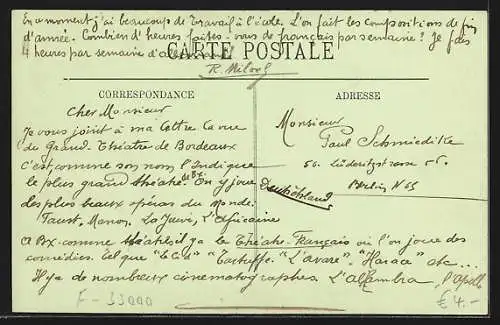 En ce moment j'ai beaucoup de travail à l'école. L'on fait les compositions de fin
d'année. Combien d'heures faites-vous de français par semaine? Je fais
4 heures par semaine d'allemand
CARTE POSTALE
CORRESPONDANCE
Cher Monsieur
Je vous joint à ma lettre la vue
du Grand Théâtre de Bordeaux
c'est comme son nom l'indique
le plus grand théâtre de Bx. On y joue
des plus beaux opéras du monde.
Faust, Manon, La Juive, L'Africaine
à Bx comme théâtre il y a le Théâtre-Français où l'on joue des
comédies. Tel que "Le Cid" "Tartuffe" "L'avare" "Horace" etc...
Il y a de nombreux cinématographes. L'alhambra, l'Apollo
ADRESSE
Monsieur
Paul Schmiedike
56. Lüderitzstrasse 56.
Berlin N 65
Deutschland
F-33000
€ 4.-